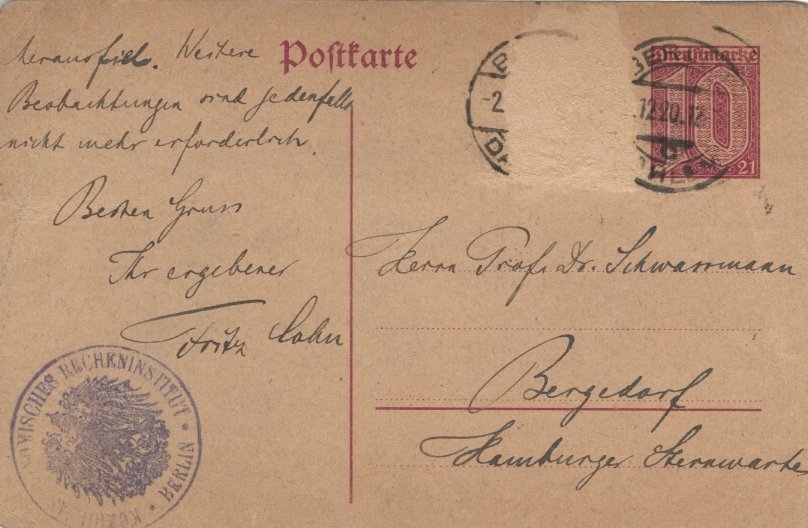 herausfiel. Weitere
Beobachtungen sind jedenfalls
nicht mehr erforderlich.
Besten Gruss
Ihr ergebener
Fritz Cohn
Postkarte
-2.12.20.12
Dienstmarke
10
21
Herrn Prof. Dr. Schwassmann
Bergedorf
Hamburger Sternwarte
RECHENINSTITUT * BERLIN *